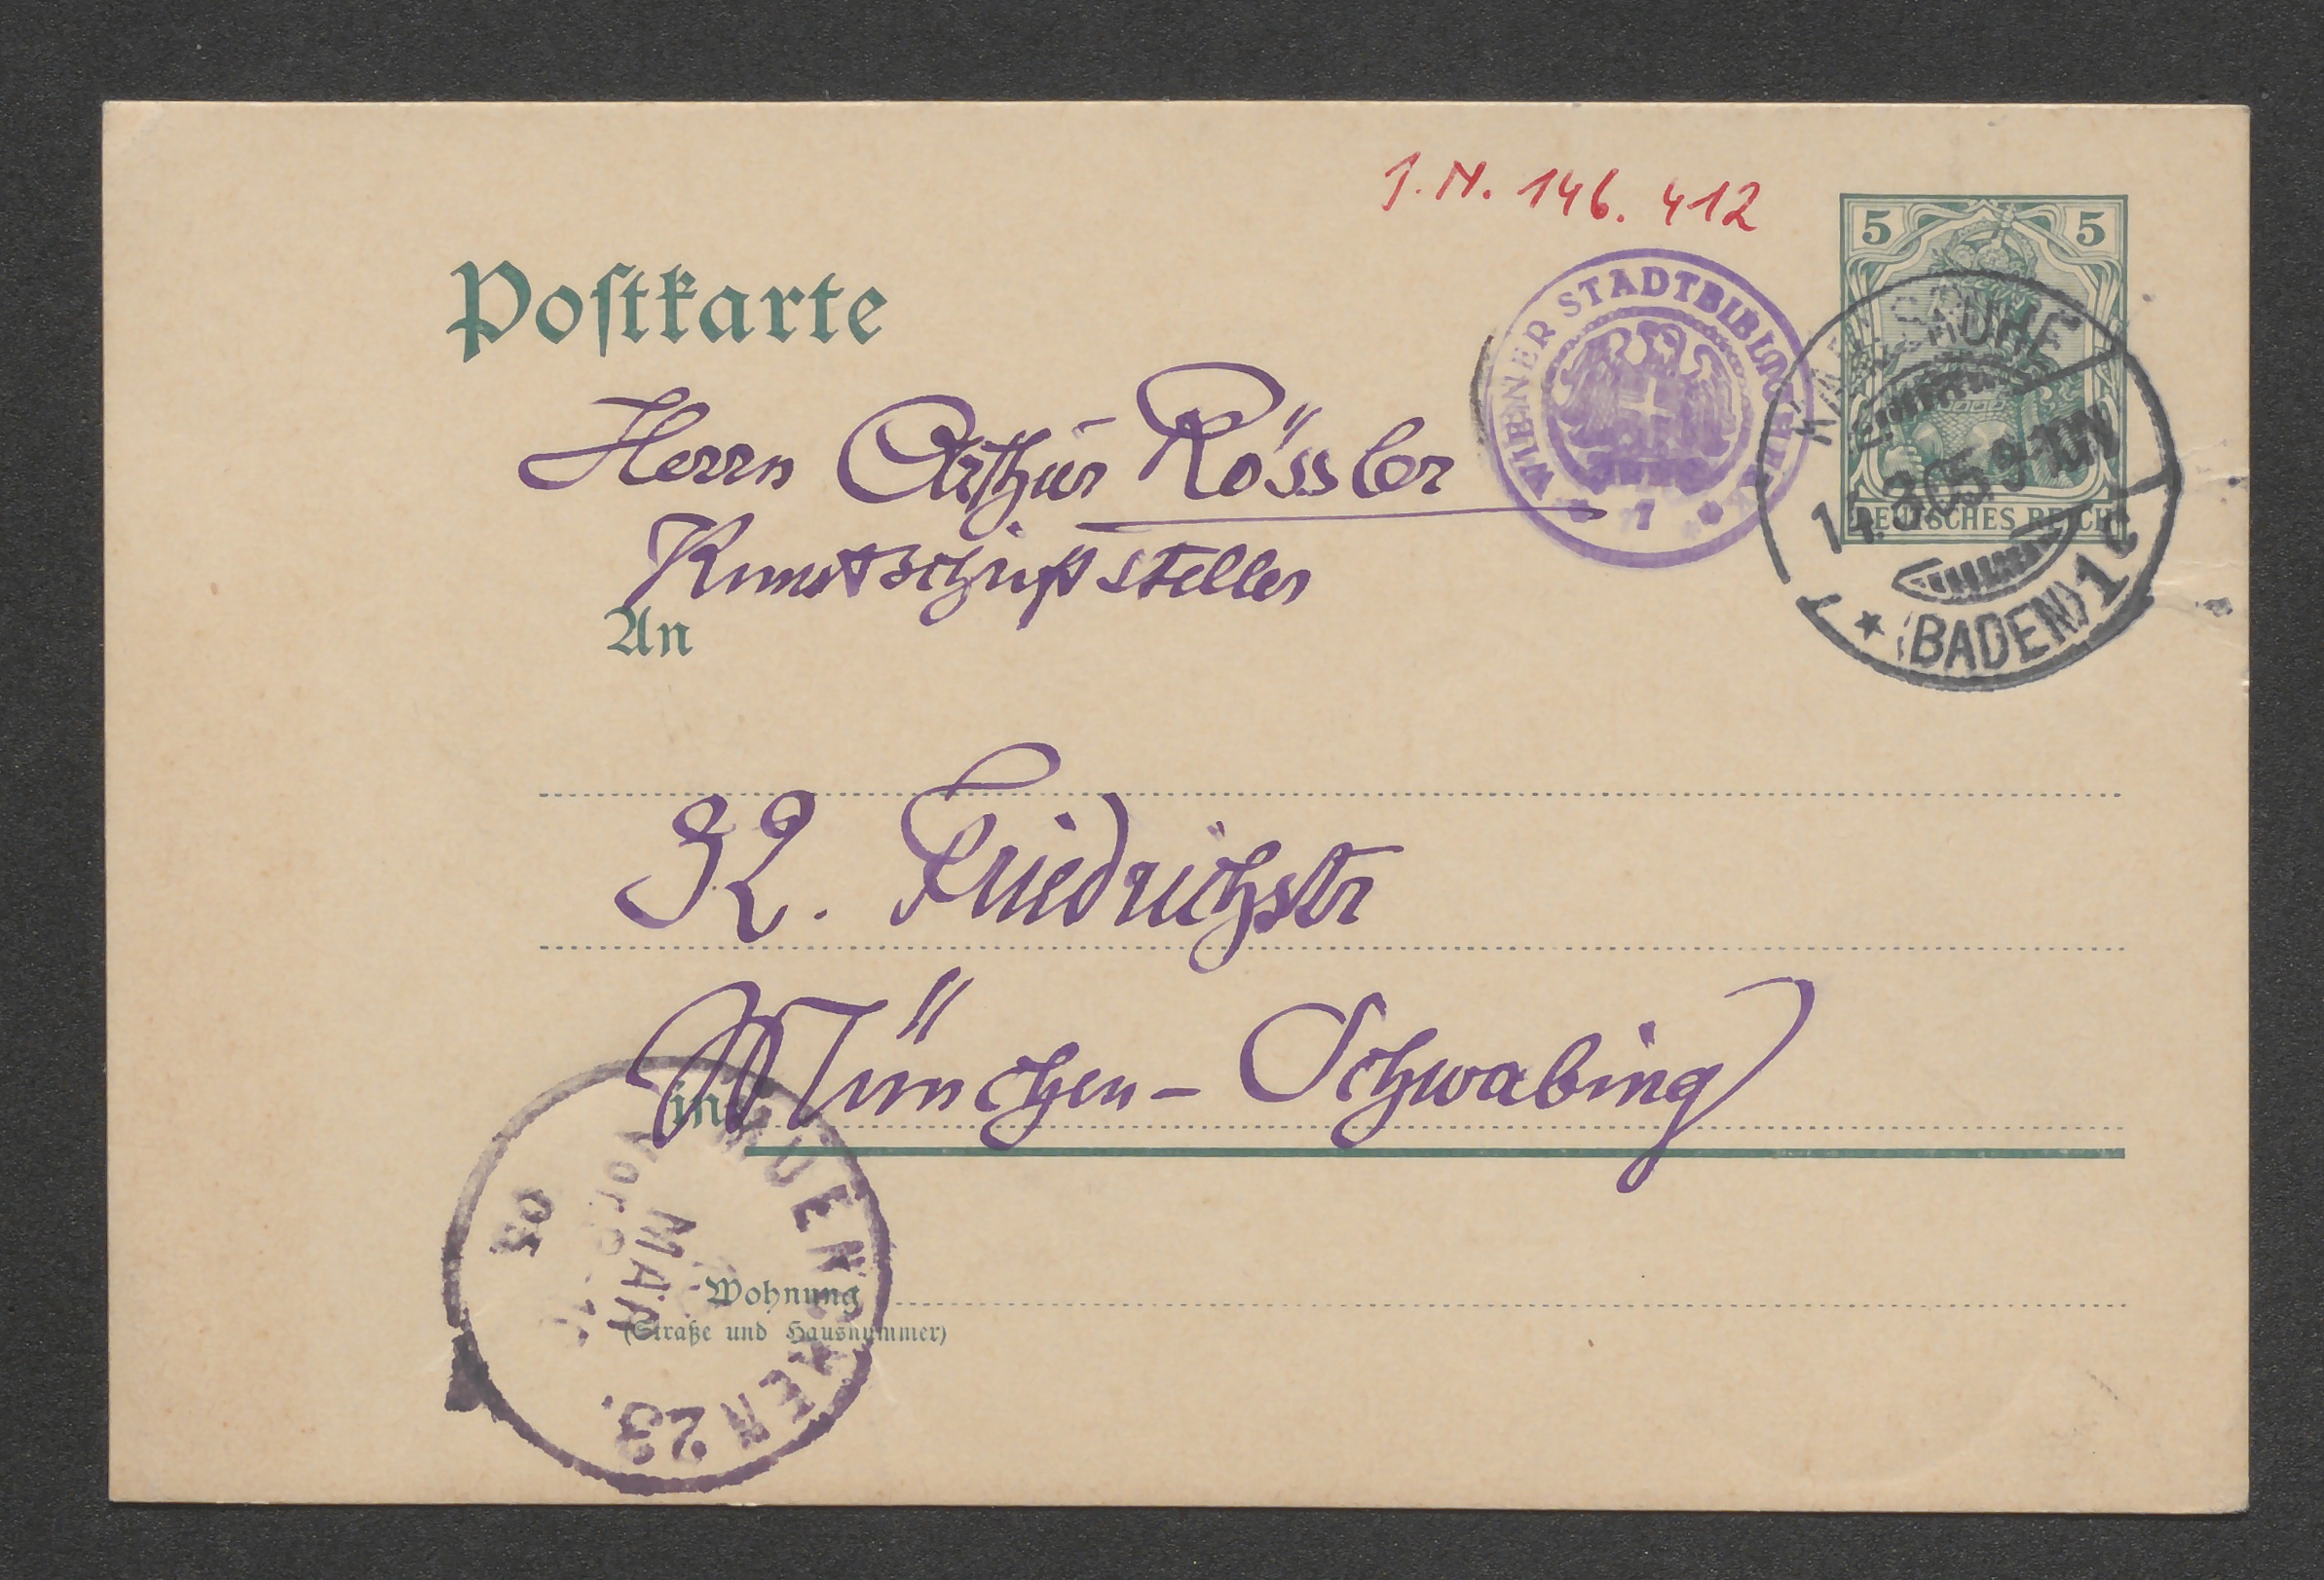 J.N. 146.412
5 5
DEUTSCHES REICH
Postkarte
WIENER STADTBIBLIOTHEK
* 1 *
KARLSRUHE
14.3.05. 9-10N
* (BADEN) 1 c
Herrn Arthur Rössler
Kunstschriftsteller
An
32. Friedrichstr
München-Schwabing
in
MUENCHEN 23.
Vorm
MÄR
05
Wohnung
(Straße und Hausnummer)